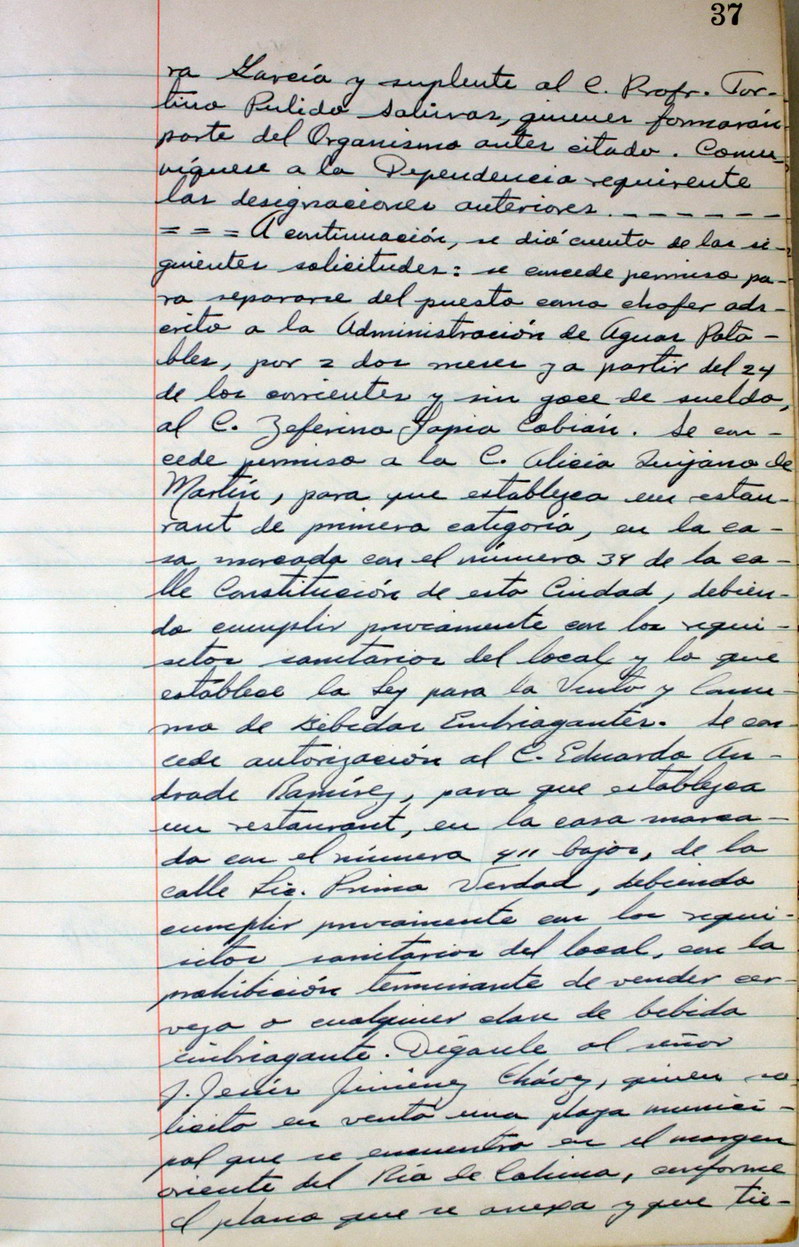 37
ra García y suplente al C. Profr. Tor-
tino Pulido Salinas, quienes formarán
parte del Organismo antes citado. Comu-
níquese a la Dependencia requirente
las designaciones anteriores. - - - - - - -
= = = A continuación, se dió cuenta de las si-
guientes solicitudes: se concede permiso pa-
ra separarse del puesto como chofer ads-
crito a la Administración de Aguas Pota-
bles, por 2 dos meses y a partir del 24
de los corrientes y sin goce de sueldo,
al C. Zeferino Tapia Cobián. Se con-
cede permiso a la C. Alicia Quijano de
Martín, para que establezca un restau-
rant de primera categoría, en la ca-
sa marcada con el número 34 de la ca-
lle Constitución de esta Ciudad, debien-
do cumplir previamente con los requi-
sitos sanitarios del local y lo que
establece la Ley para la Venta y Consu-
mo de Bebidas Embriagantes. Se con-
cede autorización al C. Eduardo An-
drade Ramírez, para que establezca
un restaurant, en la casa marca-
da con el número 411 bajos, de la
calle Lic. Primo Verdad, debiendo
cumplir previamente con los requi-
sitos sanitarios del local, con la
prohibición terminante de vender cer-
veza o cualquier clase de bebida
embriagante. Dígasele al señor
J. Jesús Jiménez Chávez, quien so-
licita en venta una playa munici-
pal que se encuentra en el margen
oriente del Río de Colima, conforme
el plano que se anexa y que tie-